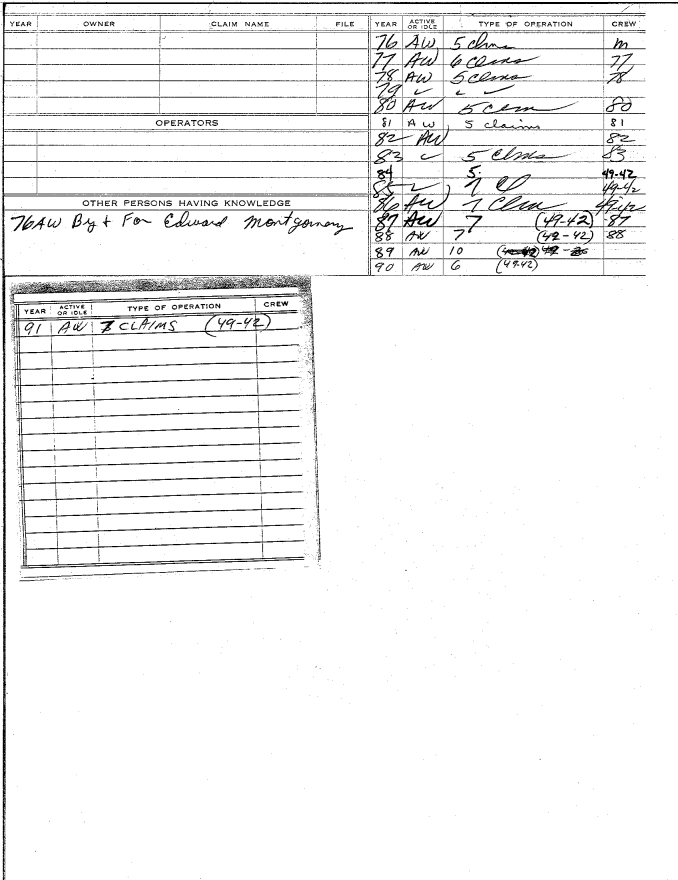 YEAR OWNER CLAIM NAME FILE
OPERATORS
OTHER PERSONS HAVING KNOWLEDGE
76 AW By + For Edward Montgomery
YEAR ACTIVE OR IDLE TYPE OF OPERATION CREW
76 AW 5 clms m
77 AW 6 Clms 77
78 AW 5 clms 78
79 ✓ ✓ ✓
80 AW 5 Clm 80
81 AW 5 claims 81
82 AW 82
83 ✓ 5 Clms 83
84 5 49-42
85 ✓ 7 Cl 49-42
86 AW 7 Clm 49-42
87 AW 7 (49-42) -87
88 AW 7 (49-42) 88
89 AW 10
90 AW 6 (49-42)
YEAR ACTIVE OR IDLE TYPE OF OPERATION CREW
91 AW 7 CLAIMS (49-42)